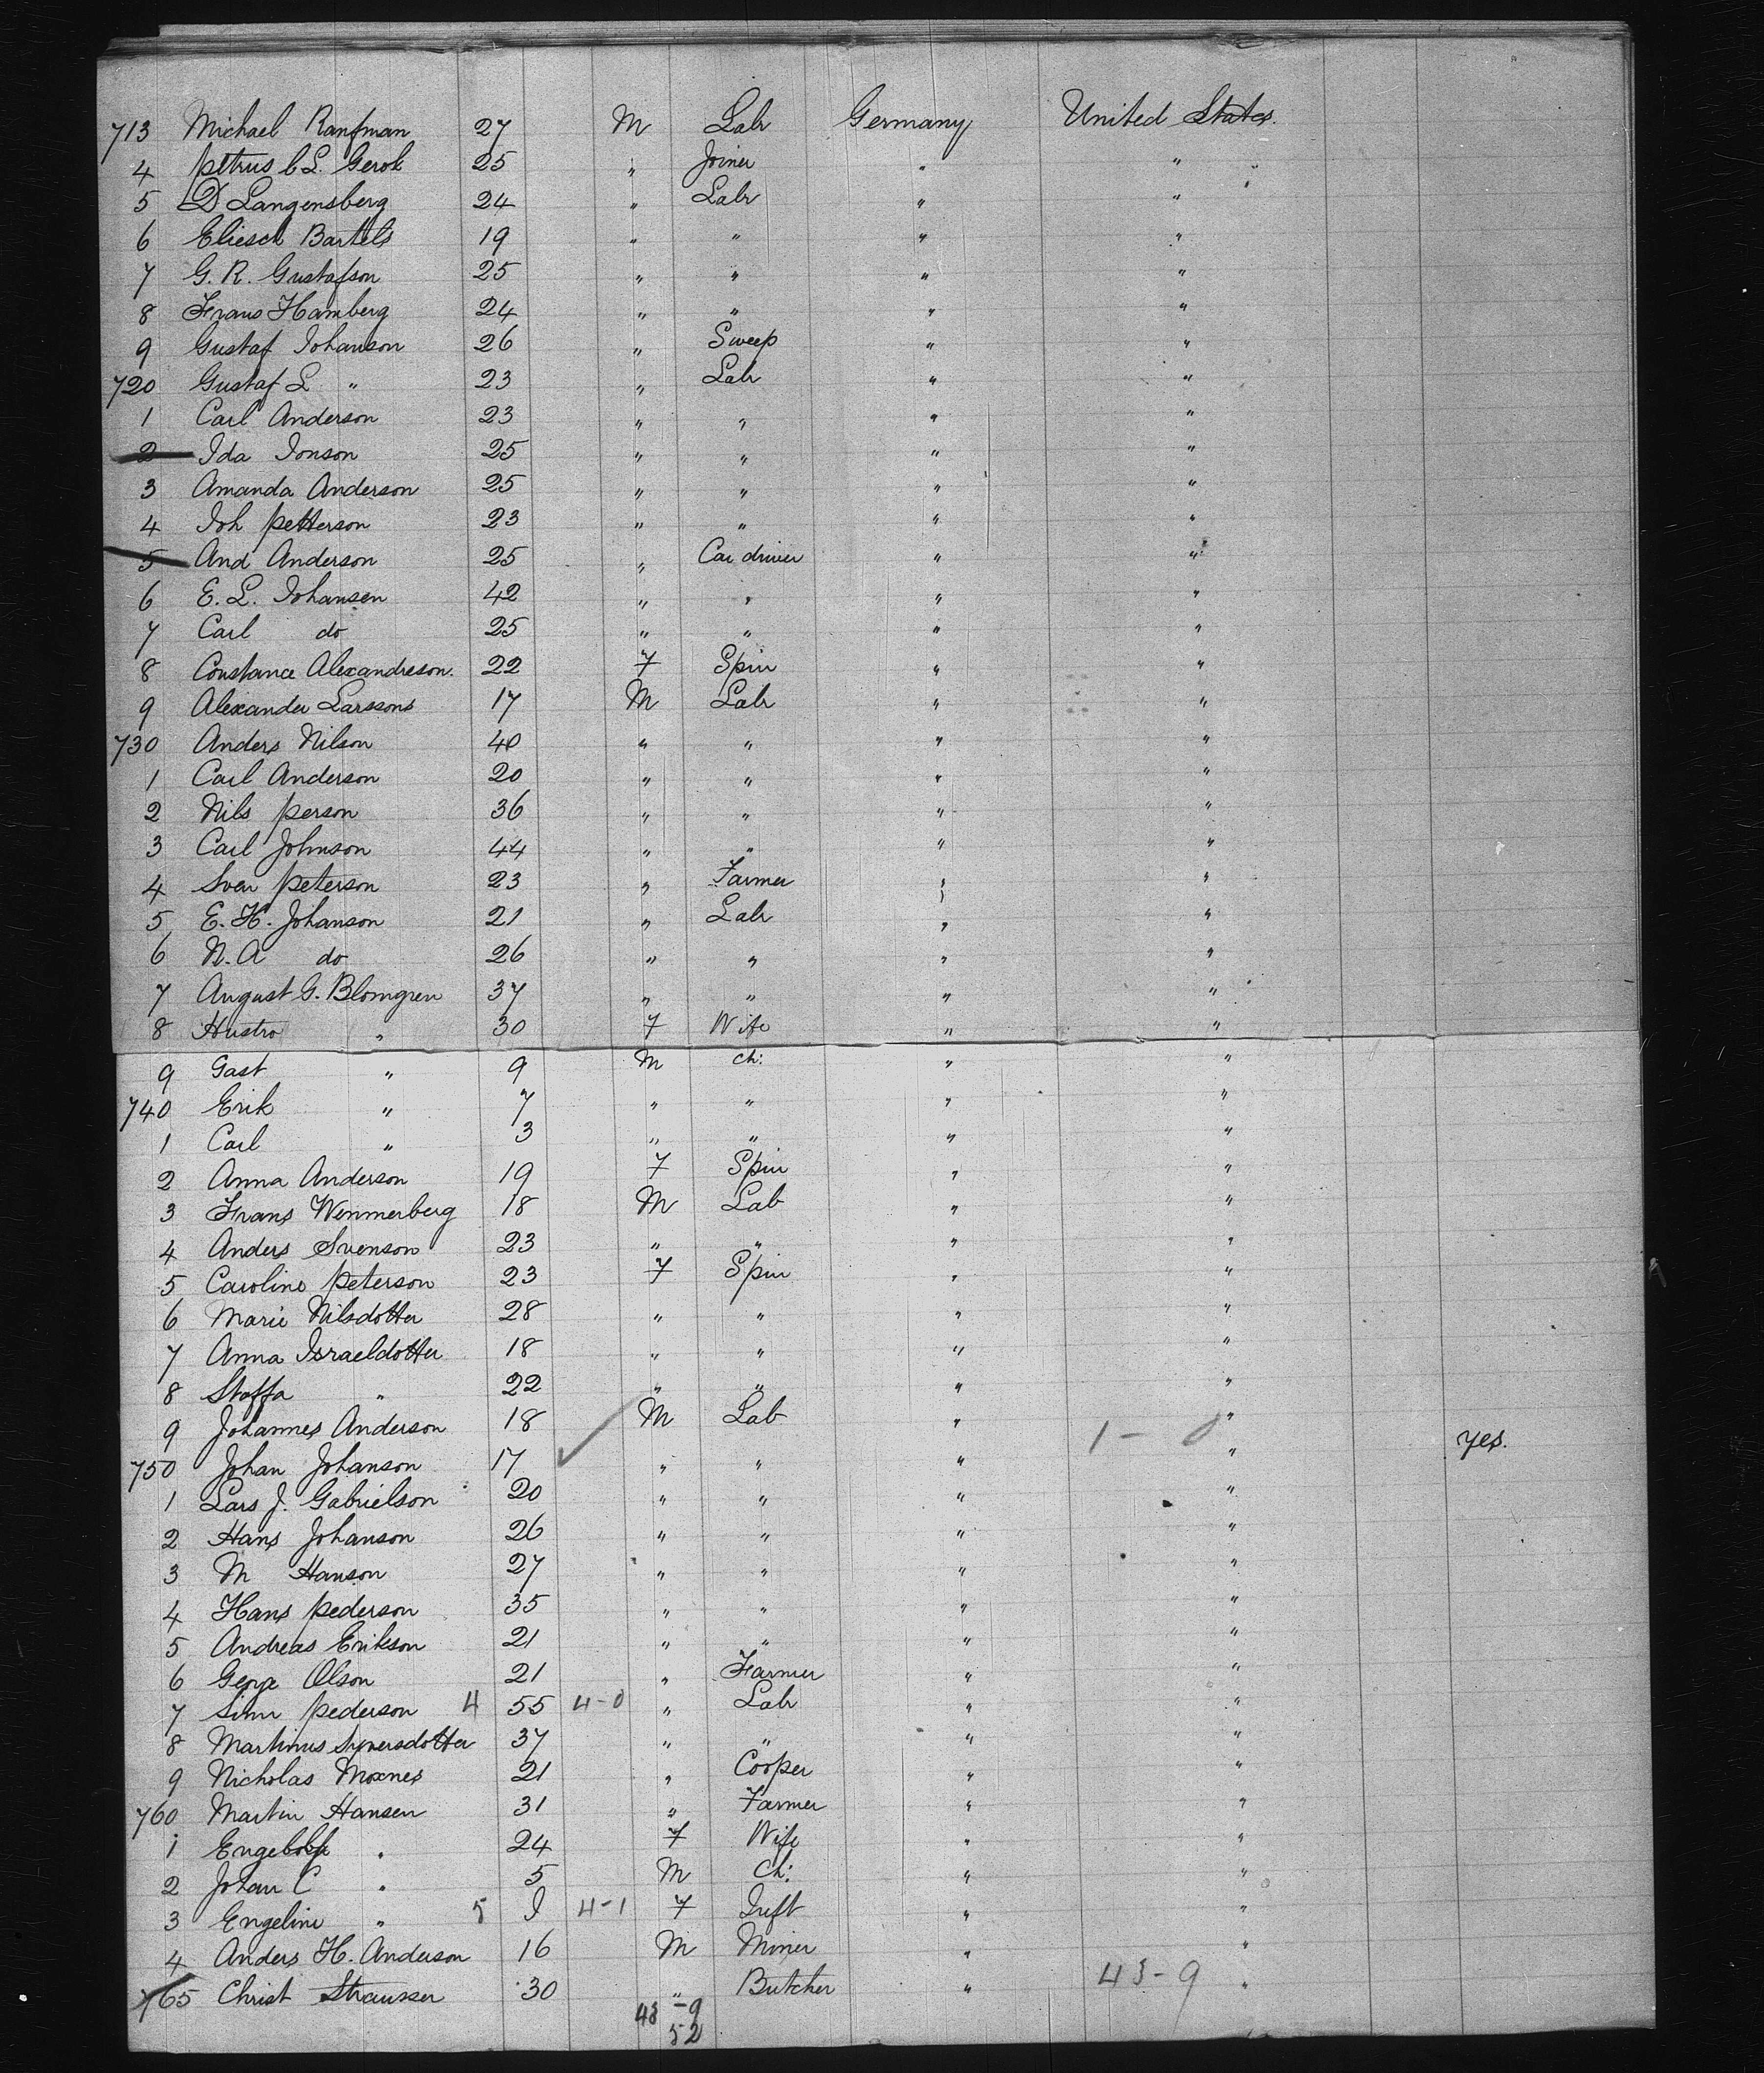 713 Michael Ranfman 27 M Labr Germany United States.
4 Petrus C L. Gerok 25 " Joiner " "
5 D Langensberg 24 " Labr " "
6 Eliesch Bartels 19 " " " "
7 G. R. Gustafson 25 " " " "
8 Frans Hamberg 24 " " " "
9 Gustaf Johanson 26 " Sweep " "
720 Gustaf L " 23 " Labr " "
1 Carl Anderson 23 " " " "
2 Ida Jonson 25 " " " "
3 Amanda Anderson 25 " " " "
4 Joh Petterson 23 " " " "
5 And Anderson 25 " Car driver " "
6 E. L. Johansen 42 " " " "
7 Carl do 25 " " " "
8 Constance Alexandreson. 22 F Spin " "
9 Alexander Larssons 17 M Labr " "
730 Anders Nilson 40 " " " "
1 Carl Anderson 20 " " " "
2 Nils Person 36 " " " "
3 Carl Johnson 44 " " " "
4 Sven Peterson 23 " Farmer " "
5 E. H. Johanson 21 " Labr " "
6 N. A do 26 " " " "
7 August G. Blomgren 37 " " " "
8 Hustro " 30 F Wife " "
9 Gast " 9 M Ch: " "
740 Erik " 7 " " " "
1 Carl " 3 " " " "
2 Anna Anderson 19 F Spin " "
3 Frans Wenmerberg 18 M Lab " "
4 Anders Svenson 23 " " " "
5 Caroline Peterson 23 F Spin " "
6 Marie Nilsdotter 28 " " " "
7 Anna Israeldotter 18 " " " "
8 Staffa " 22 " " " "
9 Johannes Anderson 18 M Lab " "
750 Johan Johanson 17 " " " 1 - 0 " yes.
1 Lars J. Gabrielson 20 " " " "
2 Hans Johanson 26 " " " "
3 M Hanson 27 " " " "
4 Hans Pederson 35 " " " "
5 Andreas Erikson 21 " " " "
6 George Olson 21 " Farmer " "
7 Simr Pederson 4 55 4-0 " Labr " "
8 Martinus Syversdotter 37 " " " "
9 Nicholas Moxnes 21 " Cooper " "
760 Martin Hansen 31 " Farmer " "
1 " 24 F Wife " "
2 Johan C " 5 M Ch: " "
3 Engeline " 5 4-1 F Inft " "
4 Anders H. Anderson 16 M Miner " "
765 Christ Strausser 30 " Butcher " 43-9 "
43 -9
52